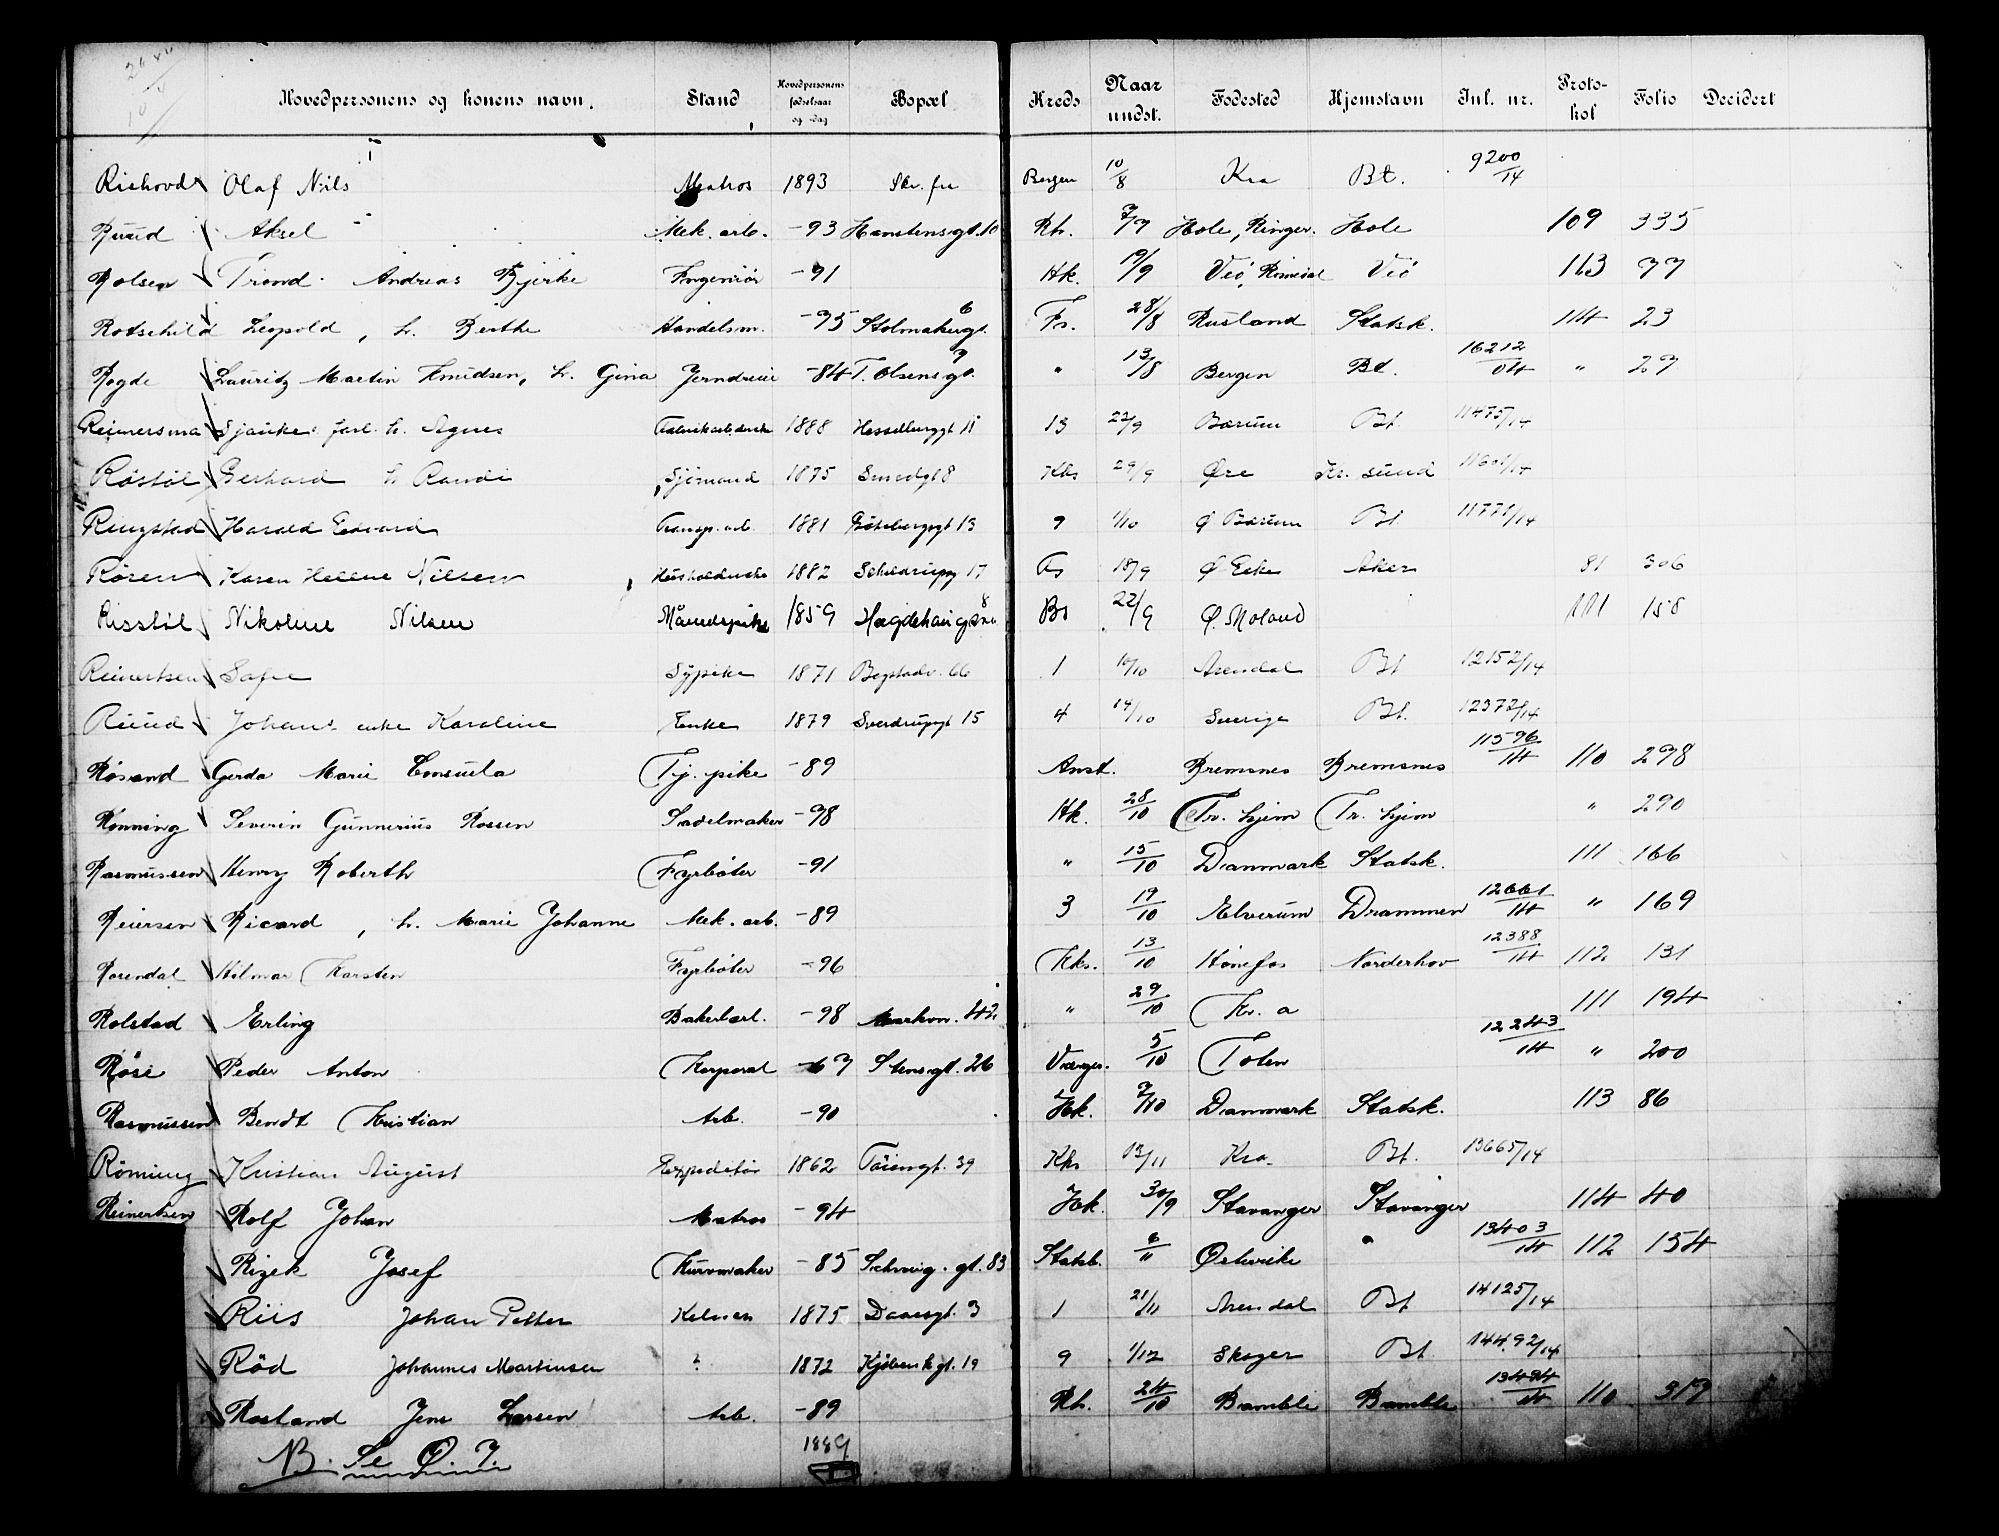 Hovedpersonens og konens navn. Stand Hovedpersonens fødselsaar og -dag Bopæl Kreds Naar undst. Fødested Hjemstavn Inl. nr. Proto-kol Folio Decidert
Rishovd Olaf Nils Matros 1893 Skr. fre Bergen 10/8 Kra Bt. 9200/14
Ruud Aksel Mek. arb. -93 Hanstensgt. 10 Rh. 7/9 Hole, Ringer. Hole 109 335
Rolsen Trond Andreas Bjerke Ingeniör -91 Hk. 19/9 Veö, Romsdal Veö 113 77
Rotschild Leopold, h. Berthe Handelsm. -95 Stolmakergt. 6 Fs. 28/8 Rusland Statsk. 114 23
Rogde Lauritz Martin Knudsen, h. Gina Jerndreier -84 T. Olsensgt. 7 " 13/8 Bergen Bt. 16212/04 " 27
Reimersma Sjauke farl. h. Agnes Fabrikarb.enke 1888 Hesselberggt 11 13 22/9 Bærum Bt. 11475/14
Röstöl Gerhard h Randi Sjömand 1875 Smedgt 8 Kks 29/9 Øre Kr. sund 11601/14
Ringstad Harald Edvard Transp. arb. 1881 Göteborggt 13 9 1/10 Ø Bærum Bt. 11771/14
Rösen Karen Hellene Nilsen Husholderske 1882 Scheldrupg 17 Fs 18/9 Ø Eker Aker 81 306
Risstöl Nikoline Nilsen Månedspike 1859 Hægdehaug 8 Bs 22/9 Ø. Moland 111 158
Reinertsen Sofie Sypike 1871 Bogstadv. 66 1 10/10 Arendal Bt 12152/14
Ruud Johans enke Karoline Enke 1879 Sverdrupgt 15 4 14/10 Sverige Bt. 12372/14
Rösand Gerda Marie Consuela Tj. pike -89 Anst. Bremsnes Bremsnes 11596/14 110 298
Rönning Severin Gunnerius Rossen Sadelmaker -98 Hk. 28/10 Tr. hjem Tr. hjem " 290
Rasmussen Henry Roberth Fyrböter -91 " 15/10 Danmark Statsk. 111 166
Reiersen Ricard, h. Marie Johanne Mek. arb. -89 3 19/10 Elverum Drammen 12661/14 " 169
Rosendal Hilmar Karsten Fyrböter -96 Kks. 13/10 Hönefos Norderhov 12388/14 112 131
Rolstad Erling Bakerlærl. -98 Markvn. 42 " 29/10 Kr. a 111 194
Röse Peder Anton Korporal -67 Stensgt. 26 Værger. 5/10 Toten 12243/14 " 200
Rasmussen Bendt Kristian Arb. -90 Hk. 7/10 Danmark Statsk. 113 86
Römung Kristian August Expeditör 1862 Töiengt. 39 Kks 13/11 Kra. Bt. 13665/14
Reinertsen Rolf Johan Matros -94 Hk. 30/9 Stavanger Stavanger 114 40
Rizek Josef Kurvmaker -85 Schweig. gt. 83 Statsb. 6/11 Österrike " 13403/14 112 154
Riis Johan Petter Kelner 1875 Daaesgt. 3 1 21/11 Arendal Bt 14125/14
Röd Johannes Martinsen ? 1872 Kjöbenh gt. 19 9 1/12 Skoger Bt 14492/14
Rosland Jens Larsen Arb. -89 Rh. 24/10 Bamble Bamble 13494/14 110 317
NB. Se Ø. J. 1889